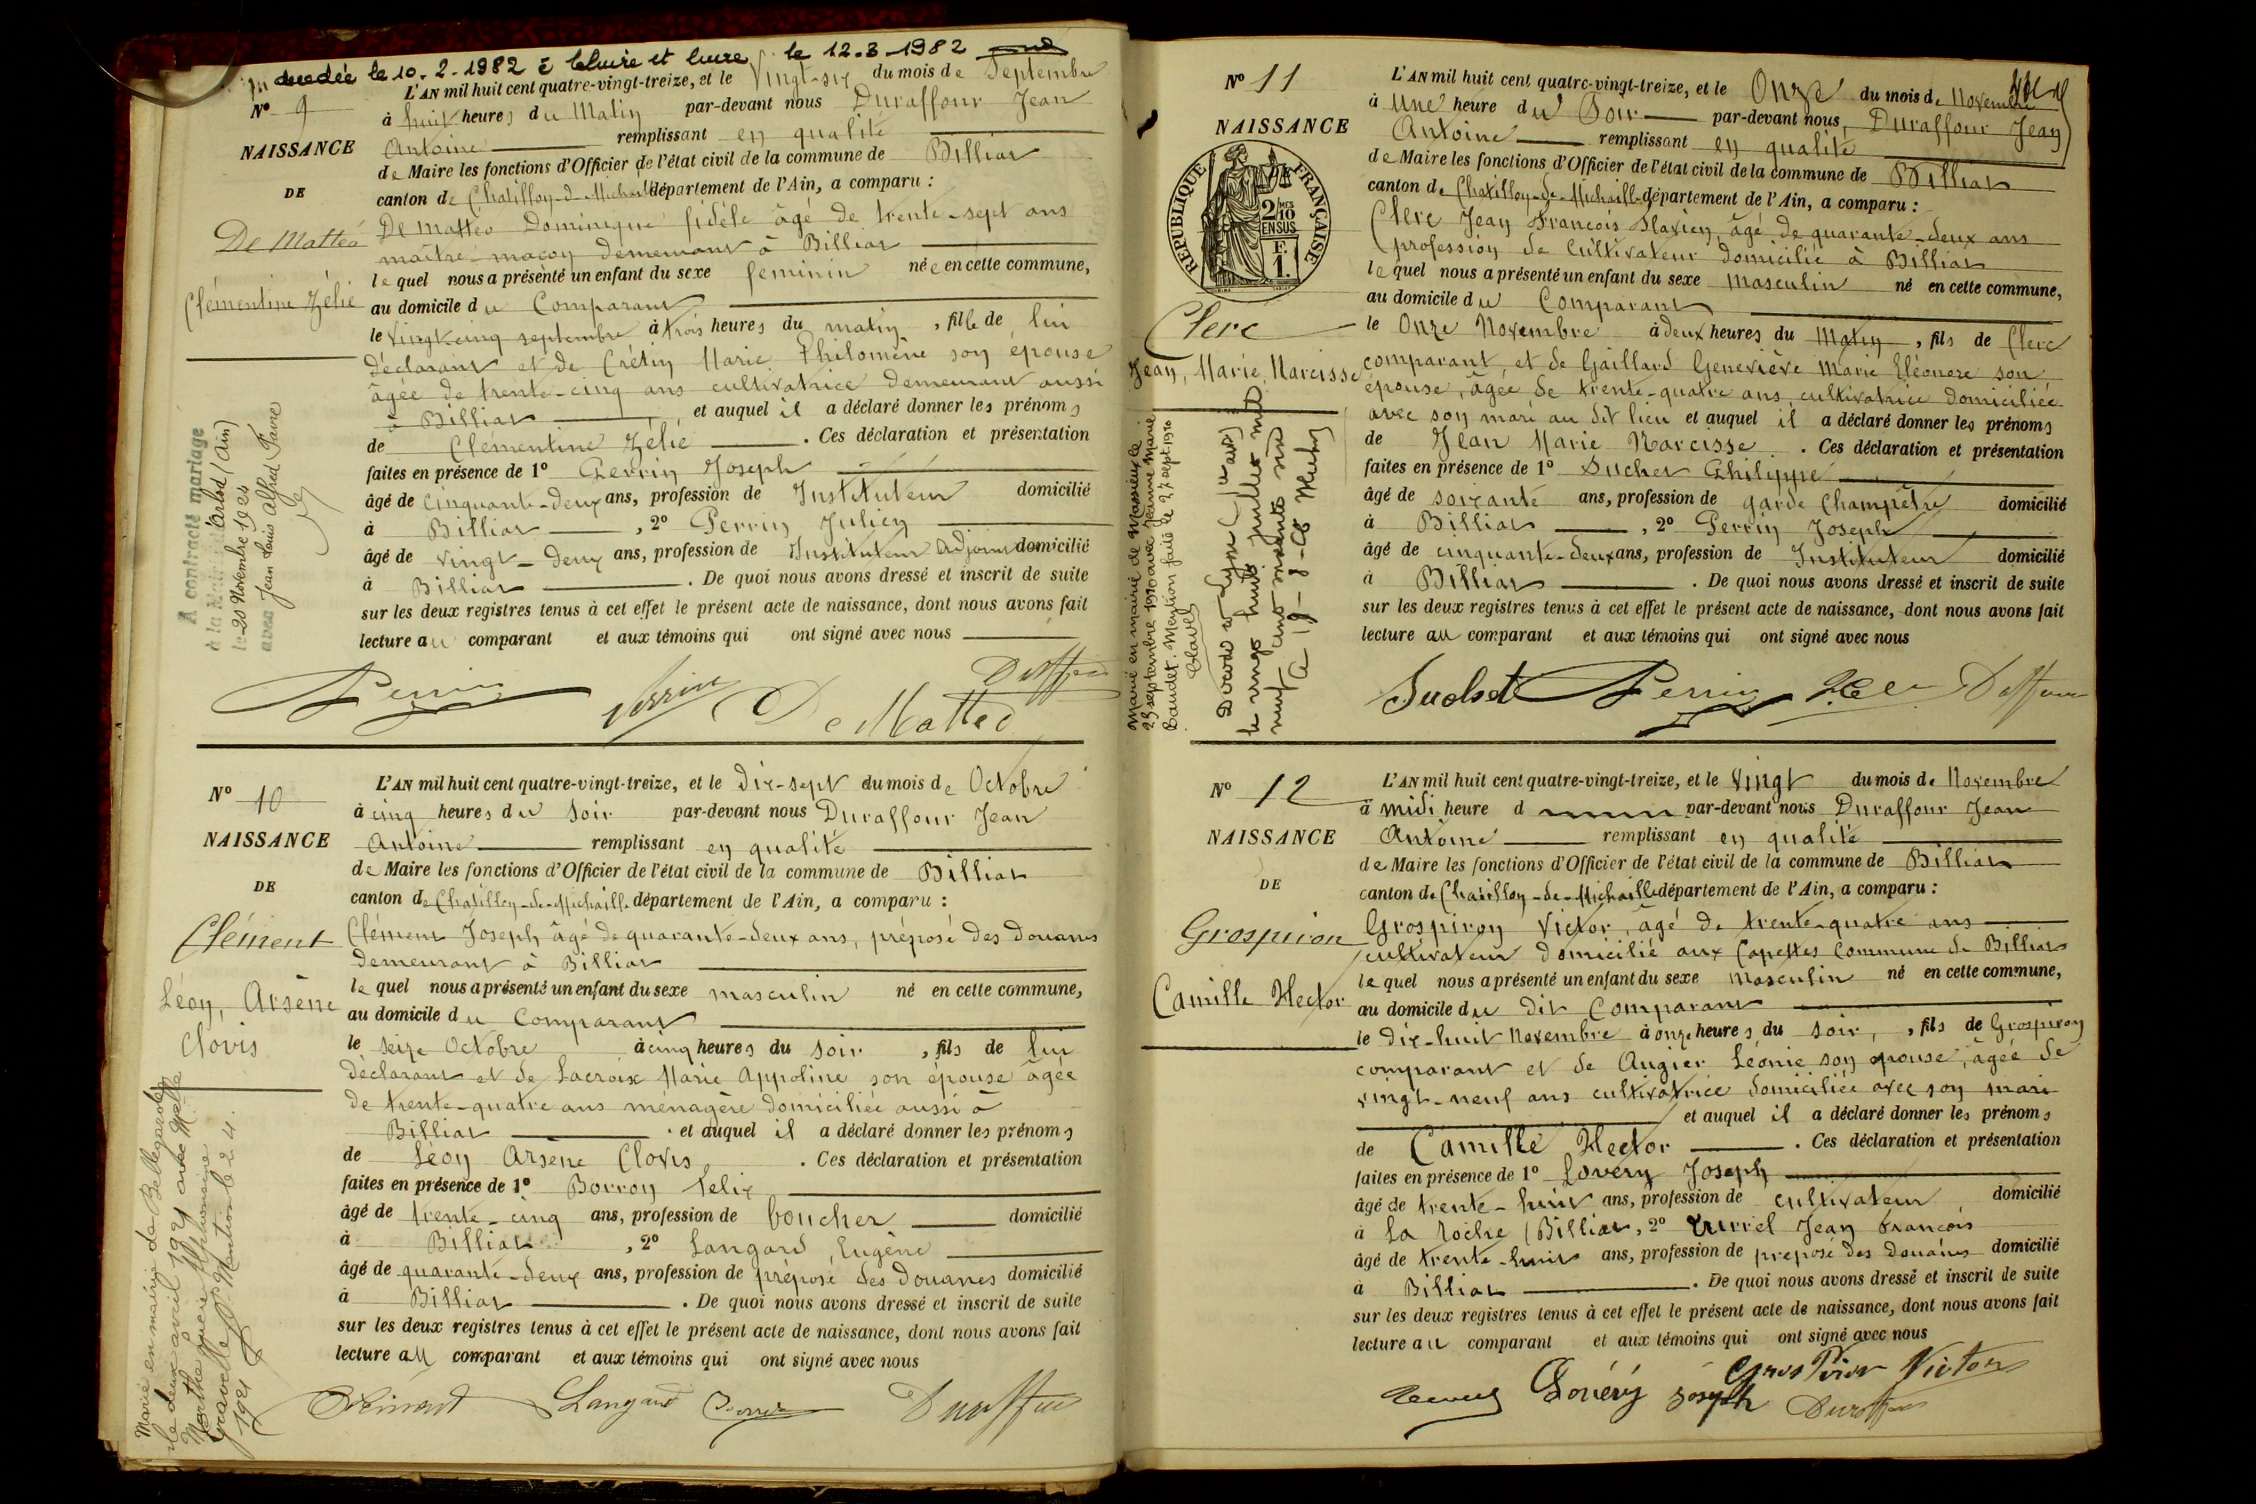 decedée le 10.2.1982 à le 12.3.1982
L'AN mil huit cent quatre-vingt-treize, et le Vingt-six du mois de Septembre
N° 9
à huit heures du Matin par-devant nous Duraffour Jean
NAISSANCE
Antoine remplissant en qualité
de Maire les fonctions d'Officier de l'état civil de la commune de Billiat
DE
canton de Chatillon-de-Michaille département de l'Ain, a comparu :
De Mattéo
De Matteo Dominique fidèle âgé de trente-sept ans
maître-maçon demeurant à Billiat
lequel nous a présenté un enfant du sexe feminin née en cette commune,
Clémentine Zélie
au domicile du Comparant
le vingt-cinq septembre à trois heures du matin, fille de lui
déclarant et de Crétin Marie Philomène son épouse
âgée de trente-cinq ans cultivatrice demeurant aussi
à Billiat et auquel il a déclaré donner les prénoms
de Clémentine Zélie . Ces déclaration et présentation
faites en présence de 1° Perrin Joseph
âgé de cinquante-deux ans, profession de Instituteur domicilié
à Billiat , 2° Perrin Julien
âgé de vingt-deux ans, profession de Instituteur Adjoint domicilié
à Billiat . De quoi nous avons dressé et inscrit de suite
sur les deux registres tenus à cet effet le présent acte de naissance, dont nous avons fait
lecture au comparant et aux témoins qui ont signé avec nous
A contracté mariage
à la Mairie d'Arlod (Ain)
le 20 Novembre 1924
avec Jean Louis Alfred Favre
Perrin Perrin De Matteo
N° 10
L'AN mil huit cent quatre-vingt-treize, et le Dix-sept du mois de Octobre
à cinq heures du soir par-devant nous Duraffour Jean
NAISSANCE
Antoine remplissant en qualité
de Maire les fonctions d'Officier de l'état civil de la commune de Billiat
DE
canton de Chatillon-de-Michaille département de l'Ain, a comparu :
Clément
Clément Joseph âgé de quarante-deux ans, préposé des Douanes
demeurant à Billiat
lequel nous a présenté un enfant du sexe masculin né en cette commune,
Léon, Arsène
au domicile du Comparant
Clovis
le seize Octobre à cinq heures du soir, fils de lui
déclarant et de Lacroix Marie Appoline son épouse âgée
de trente-quatre ans ménagère domiciliée aussi à
Billiat . et auquel il a déclaré donner les prénoms
de Léon Arsène Clovis . Ces déclaration et présentation
faites en présence de 1° Borron Felix
âgé de trente-cinq ans, profession de boucher domicilié
à Billiat , 2° Langard Eugène
âgé de quarante-deux ans, profession de préposé des Douanes domicilié
à Billiat . De quoi nous avons dressé et inscrit de suite
sur les deux registres tenus à cet effet le présent acte de naissance, dont nous avons fait
lecture au comparant et aux témoins qui ont signé avec nous
Marié en mairie de Bellegarde
le deux avril 1921 avec Melle
Marthe Alphonsine
Gravelle Mention le 2 4
1921
Clément Langard Duraffour
N° 11
L'AN mil huit cent quatre-vingt-treize, et le Onze du mois de Novembre
à Une heure du Soir par-devant nous, Duraffour Jean
NAISSANCE
Antoine remplissant en qualité
de Maire les fonctions d'Officier de l'état civil de la commune de Billiat
canton de Chatillon-de-Michaille département de l'Ain, a comparu :
RÉPUBLIQUE FRANÇAISE
2/10 MES EN SUS
F. 1.
Clerc Jean François Flavien, âgé de quarante-deux ans
profession de Cultivateur domicilié à Billiat
lequel nous a présenté un enfant du sexe masculin né en cette commune,
au domicile du Comparant
Clerc
le Onze Novembre à deux heures du Matin, fils de Clerc
Jean, Marie, Narcisse
comparant, et de Gaillard Geneviève Marie Eléonore son
épouse, âgée de trente-quatre ans, cultivatrice domiciliée
avec son mari au dit lieu et auquel il a déclaré donner les prénoms
de Jean Marie Narcisse . Ces déclaration et présentation
faites en présence de 1° Suchet Philippe
âgé de soixante ans, profession de garde champêtre domicilié
à Billiat , 2° Perrin Joseph
âgé de cinquante-deux ans, profession de Instituteur domicilié
à Billiat . De quoi nous avons dressé et inscrit de suite
sur les deux registres tenus à cet effet le présent acte de naissance, dont nous avons fait
lecture au comparant et aux témoins qui ont signé avec nous
Marié en mairie de Massieux le
25 septembre 1920 avec Jeanne Marie
Baudet. Mention faite le 27 sept. 1920
Clavel
Décédé à Lyon
le vingt huit juillet mil
neuf cent soixante six
Suchet Perrin Duraffour
N° 12
L'AN mil huit cent quatre-vingt-treize, et le vingt du mois de Novembre
à midi heure d par-devant nous Duraffour Jean
NAISSANCE
Antoine remplissant en qualité
de Maire les fonctions d'Officier de l'état civil de la commune de Billiat
DE
canton de Chatillon-de-Michaille département de l'Ain, a comparu :
Grospiron
Grospiron Victor, âgé de trente-quatre ans
cultivateur domicilié aux Capettes commune de Billiat
lequel nous a présenté un enfant du sexe masculin né en cette commune,
Camille Hector
au domicile du dit Comparant
le Dix-huit Novembre à onze heures du soir, , fils de Grospiron
comparant et de Augier Léonie son épouse, âgée de
vingt-neuf ans cultivatrice domiciliée avec son mari
et auquel il a déclaré donner les prénoms
de Camille Hector . Ces déclaration et présentation
faites en présence de 1° Lovéry Joseph
âgé de trente-huit ans, profession de cultivateur domicilié
à La roche (Billiat, 2° Jean François
âgé de trente-huit ans, profession de préposé des Douanes domicilié
à Billiat . De quoi nous avons dressé et inscrit de suite
sur les deux registres tenus à cet effet le présent acte de naissance, dont nous avons fait
lecture au comparant et aux témoins qui ont signé avec nous
Louéry Joseph Gros Piron Victor Duraffour